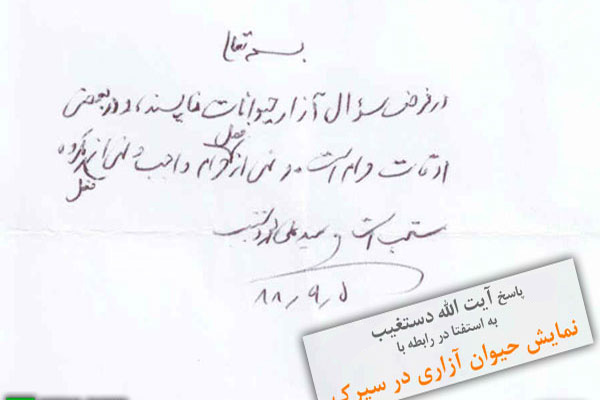 بسمه تعالی
در فرض سؤال آزار حیوانات ناپسند، و در بعضی
اوقات حرام است. و نهی از فعل حرام واجب و نهی از فعل مکروه
مستحب است. سید علی محمد دستغیب
۸۸٫۹٫۵
پاسخ آیت الله دستغیب
به استفتا در رابطه با
نمایش حیوان آزاری در سیرک